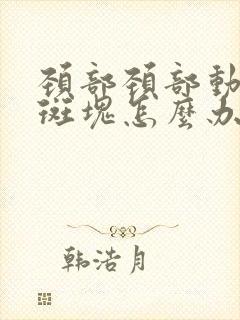 頚部頚部動
斑塊怎麼办
韩浩月